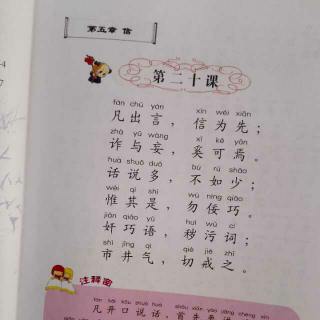 第五章 信
第二十课
fán chū yán xìn wéi xiān
凡出言，信为先；
zhà yǔ wàng xī kě yān
诈与妄，奚可焉。
huà shuō duō bù rú shǎo
话说多，不如少；
wéi qí shì wù nìng qiǎo
惟其是，勿佞巧。
jiān qiǎo yǔ huì wū cí
奸巧语，秽污词；
shì jǐng qì qiè jiè zhī
市井气，切戒之。
注释阁
fán kāi kǒu shuō huà shǒu xiān yào
凡开口说话，首先要